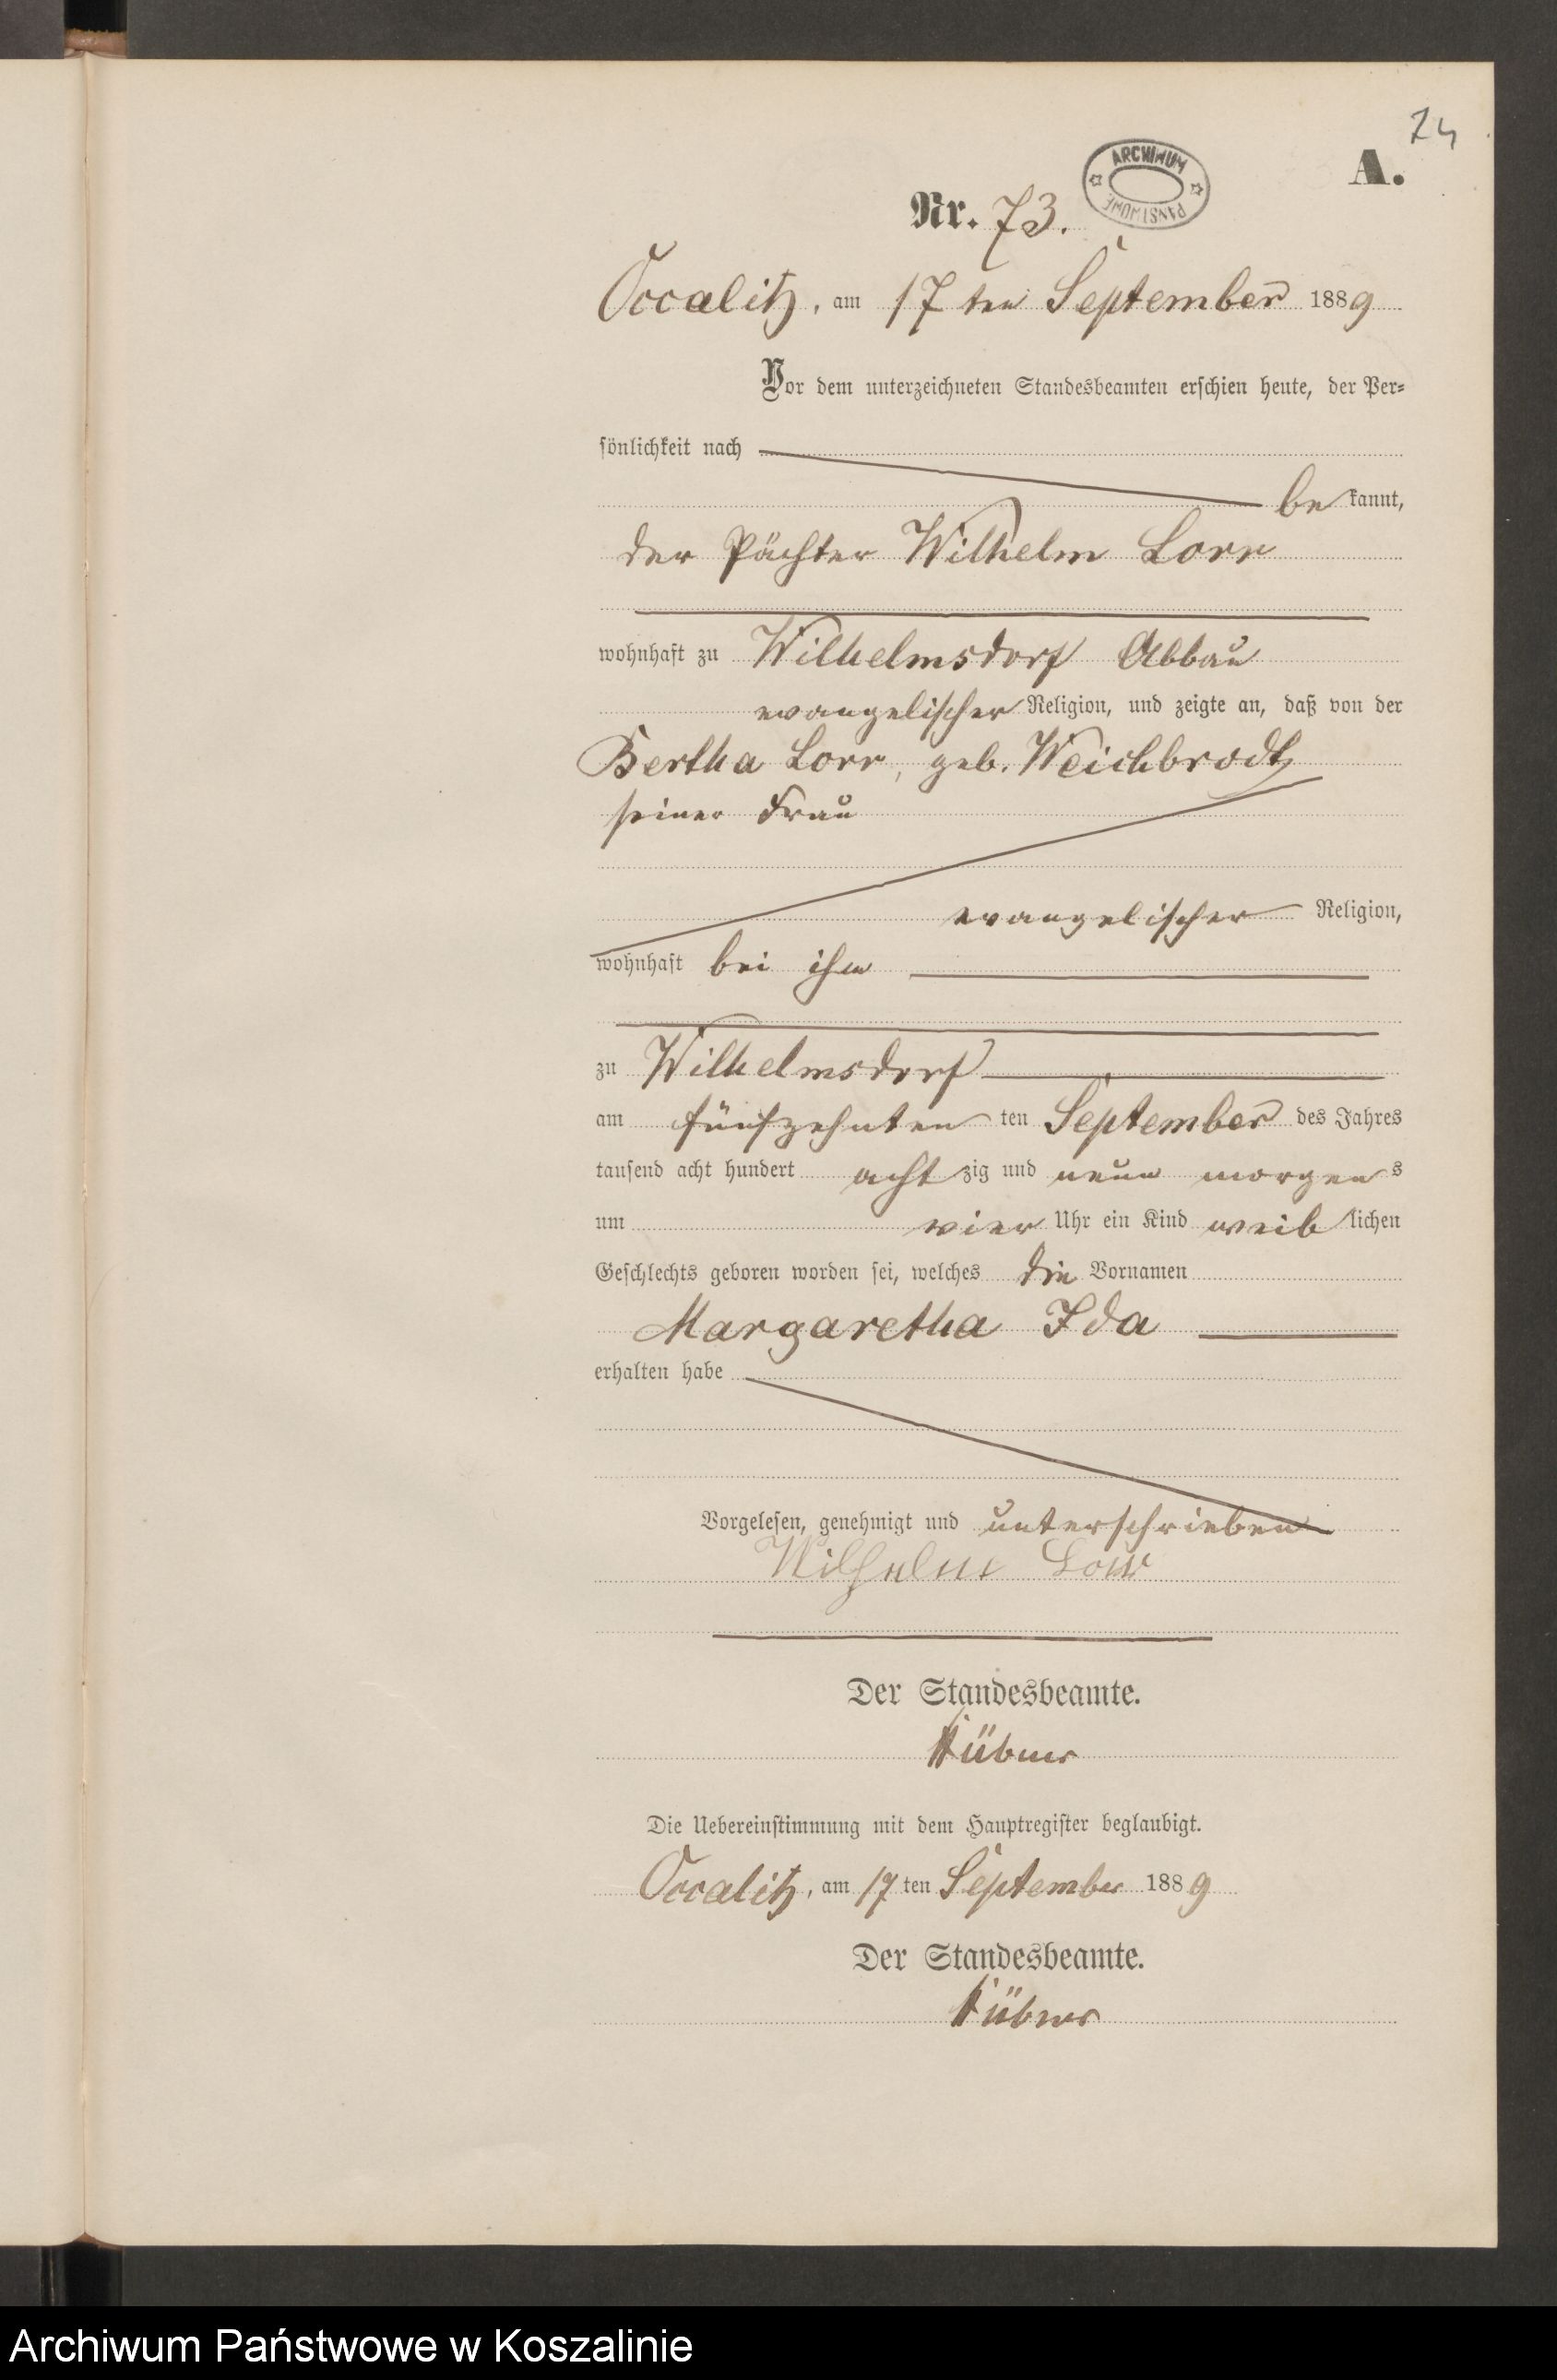 74
A.
ARCHIWUM PAŃSTWOWE
Nr. 73.
Occalitz, am 17 ten September 1889
Vor dem unterzeichneten Standesbeamten erschien heute, der Per-
sönlichkeit nach
be kannt,
der Pächter Wilhelm Lorr
wohnhaft zu Wilhelmsdorf Abbau
evangelischer Religion, und zeigte an, daß von der
Bertha Lorr, geb. Weichbrodt,
seiner Frau
evangelischer Religion,
wohnhaft bei ihm
zu Wilhelmsdorf
am fünfzehnten ten September des Jahres
tausend acht hundert acht zig und neun morgen s
um vier Uhr ein Kind weib lichen
Geschlechts geboren worden sei, welches die Vornamen
Margaretha Ida
erhalten habe
Vorgelesen, genehmigt und unterschrieben
Wilhelm Lorr
Der Standesbeamte.
Hübner
Die Uebereinstimmung mit dem Hauptregister beglaubigt.
Occalitz, am 17 ten September 1889
Der Standesbeamte.
Hübner
Archiwum Państwowe w Koszalinie